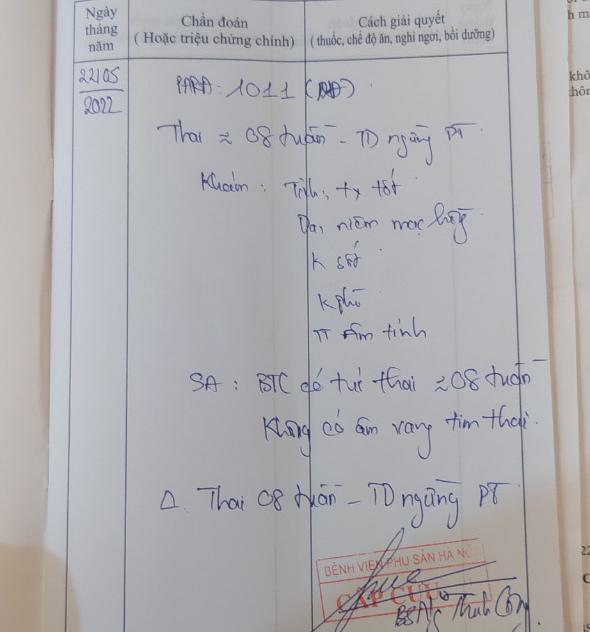 Ngày
tháng
năm
Chẩn đoán
( Hoặc triệu chứng chính)
Cách giải quyết
( thuốc, chế độ ăn, nghỉ ngơi, bồi dưỡng)
22/05
2022
PARA: 1011
Thai ≈ 08 tuần - TD ngừng PT
Khám: Tỉnh, tx tốt
Da, niêm mạc hồng
K sốt
K phù
TT âm tính
SA: BTC có túi thai ≈ 08 tuần
Không có âm vang tim thai.
Δ. Thai 08 tuần - TD ngừng PT
BỆNH VIỆN PHỤ SẢN HÀ NỘI
CẤP CỨU